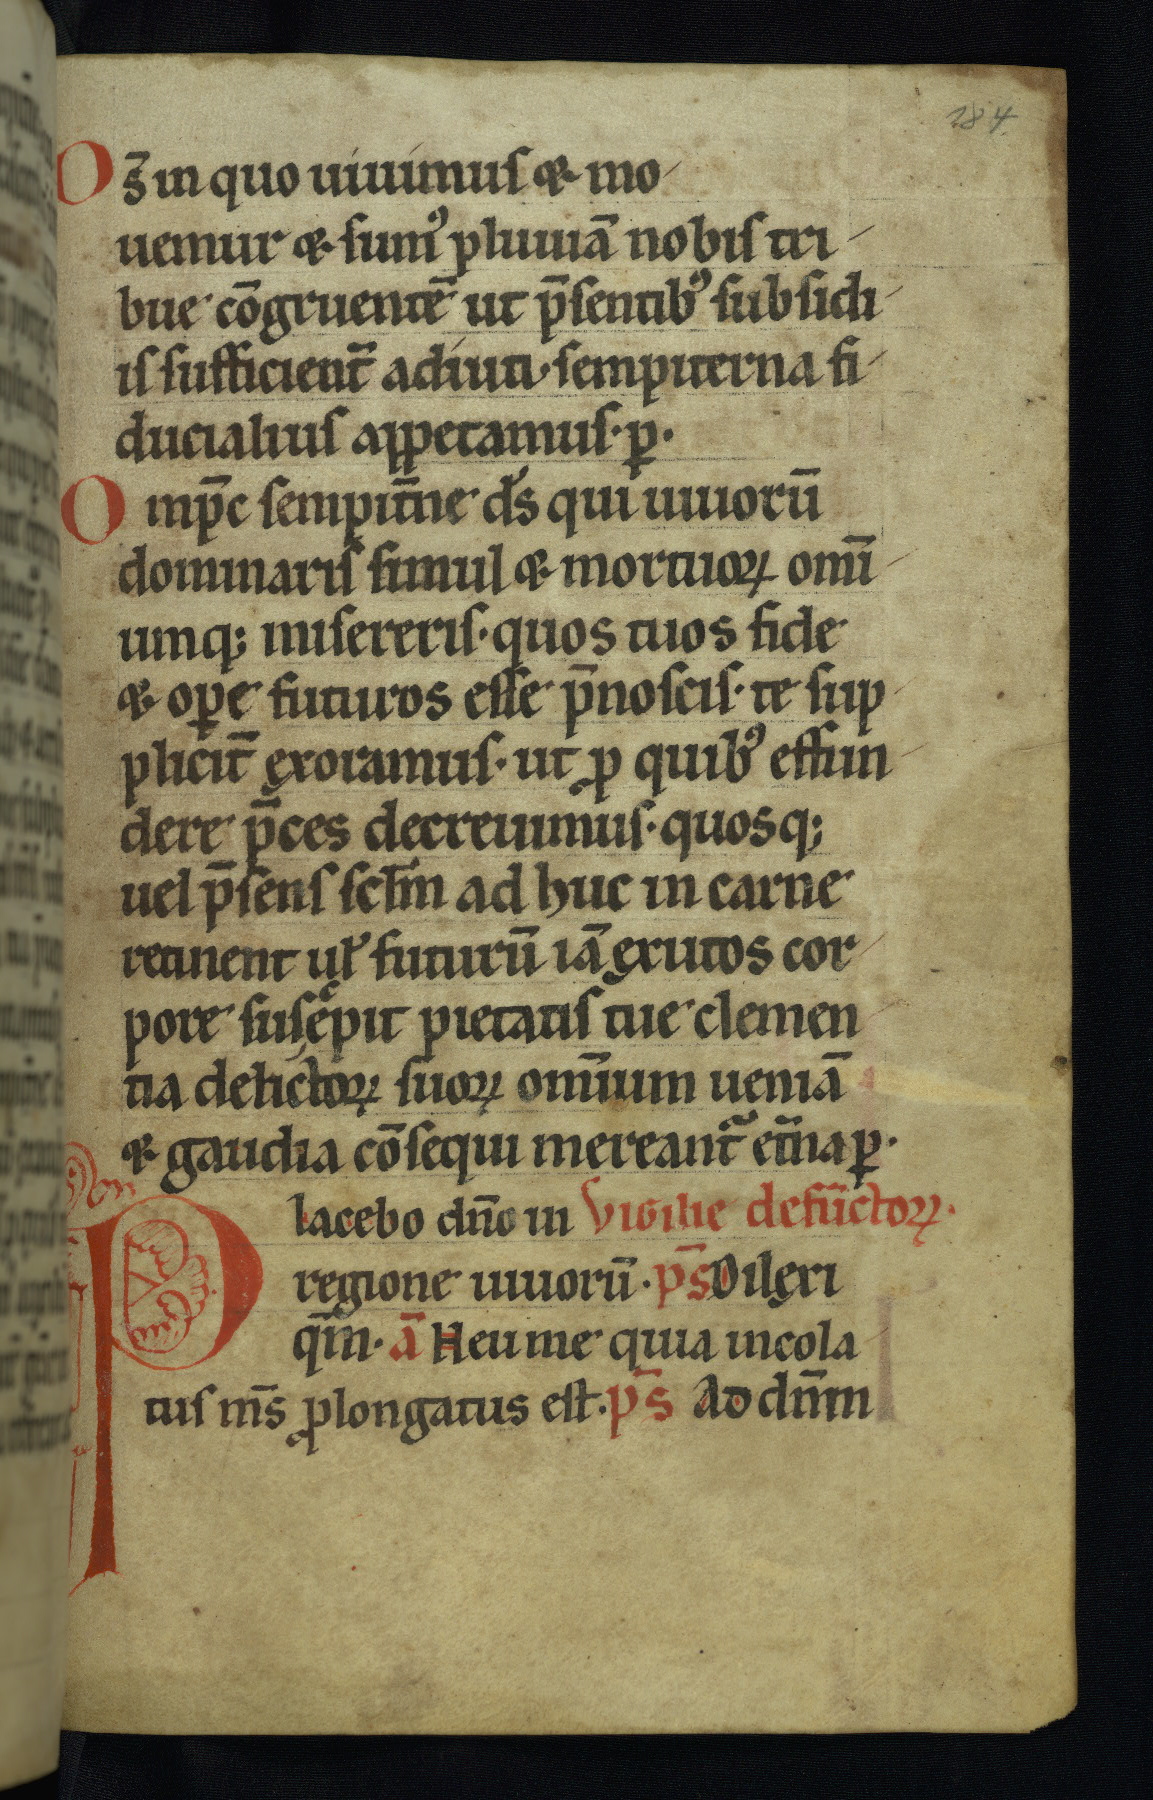 184
Os̄ in quo uiuimus & mo
uemur & sumꝰ pluuiā nobis tri
bue cōgruentē ut p̄sentibꝰ subsidi
is sufficient̄ adiuti· sempiterna fi
ducialius appetamus· ꝑ·
Omp̄c sempit̄ne ds̄ qui uiuorū
dominaris simul & mortuoꝝ omī
umq; misereris· quos tuos fide
& oꝑe futuros esse p̄noscis· te sup
plicit̄ exoramus· ut ꝓ quibꝰ effun
dere p̄ces decreuimus· quosq;
uel p̄sens sc̄lm ad huc in carne
retinent ul̓ futurū iā exutos cor
pore suscepit pietatis tue clemen
tia delictoꝝ suoꝝ om̄ium ueniā
& gaudia cōsequi mereant᷑ et̄na ꝑ·
Placebo dn̄o in Vigilie defūctoꝝ·
regione uiuorū· p̄s Dilexi
qm̄· ā Heu me quia incola
tus ms̄ ꝓlongatus est· p̄s Ad dn̄m